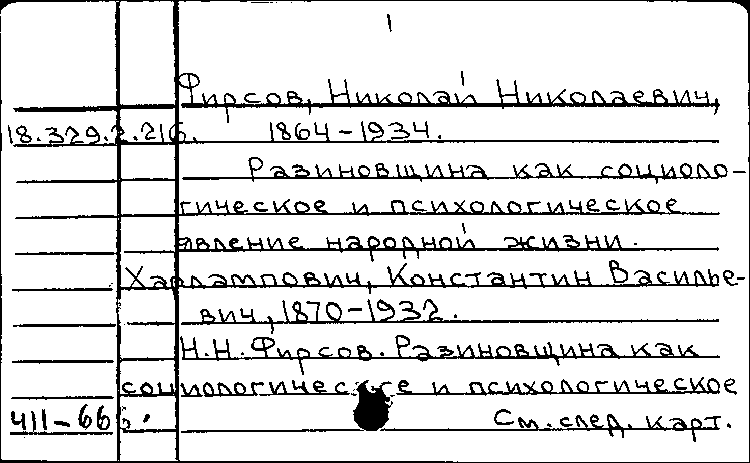 Фирсов, Николай Николаевич,
18.329.2.216. 1864-1934.
Разиновщина как социоло-
гическое и психологическое
явление народной жизни.
Харлампович, Константин Василье-
вич, 1870-1932.
Н.Н.Фирсов. Разиновщина как
социологическое и психологическое
411-66 См. след. карт.